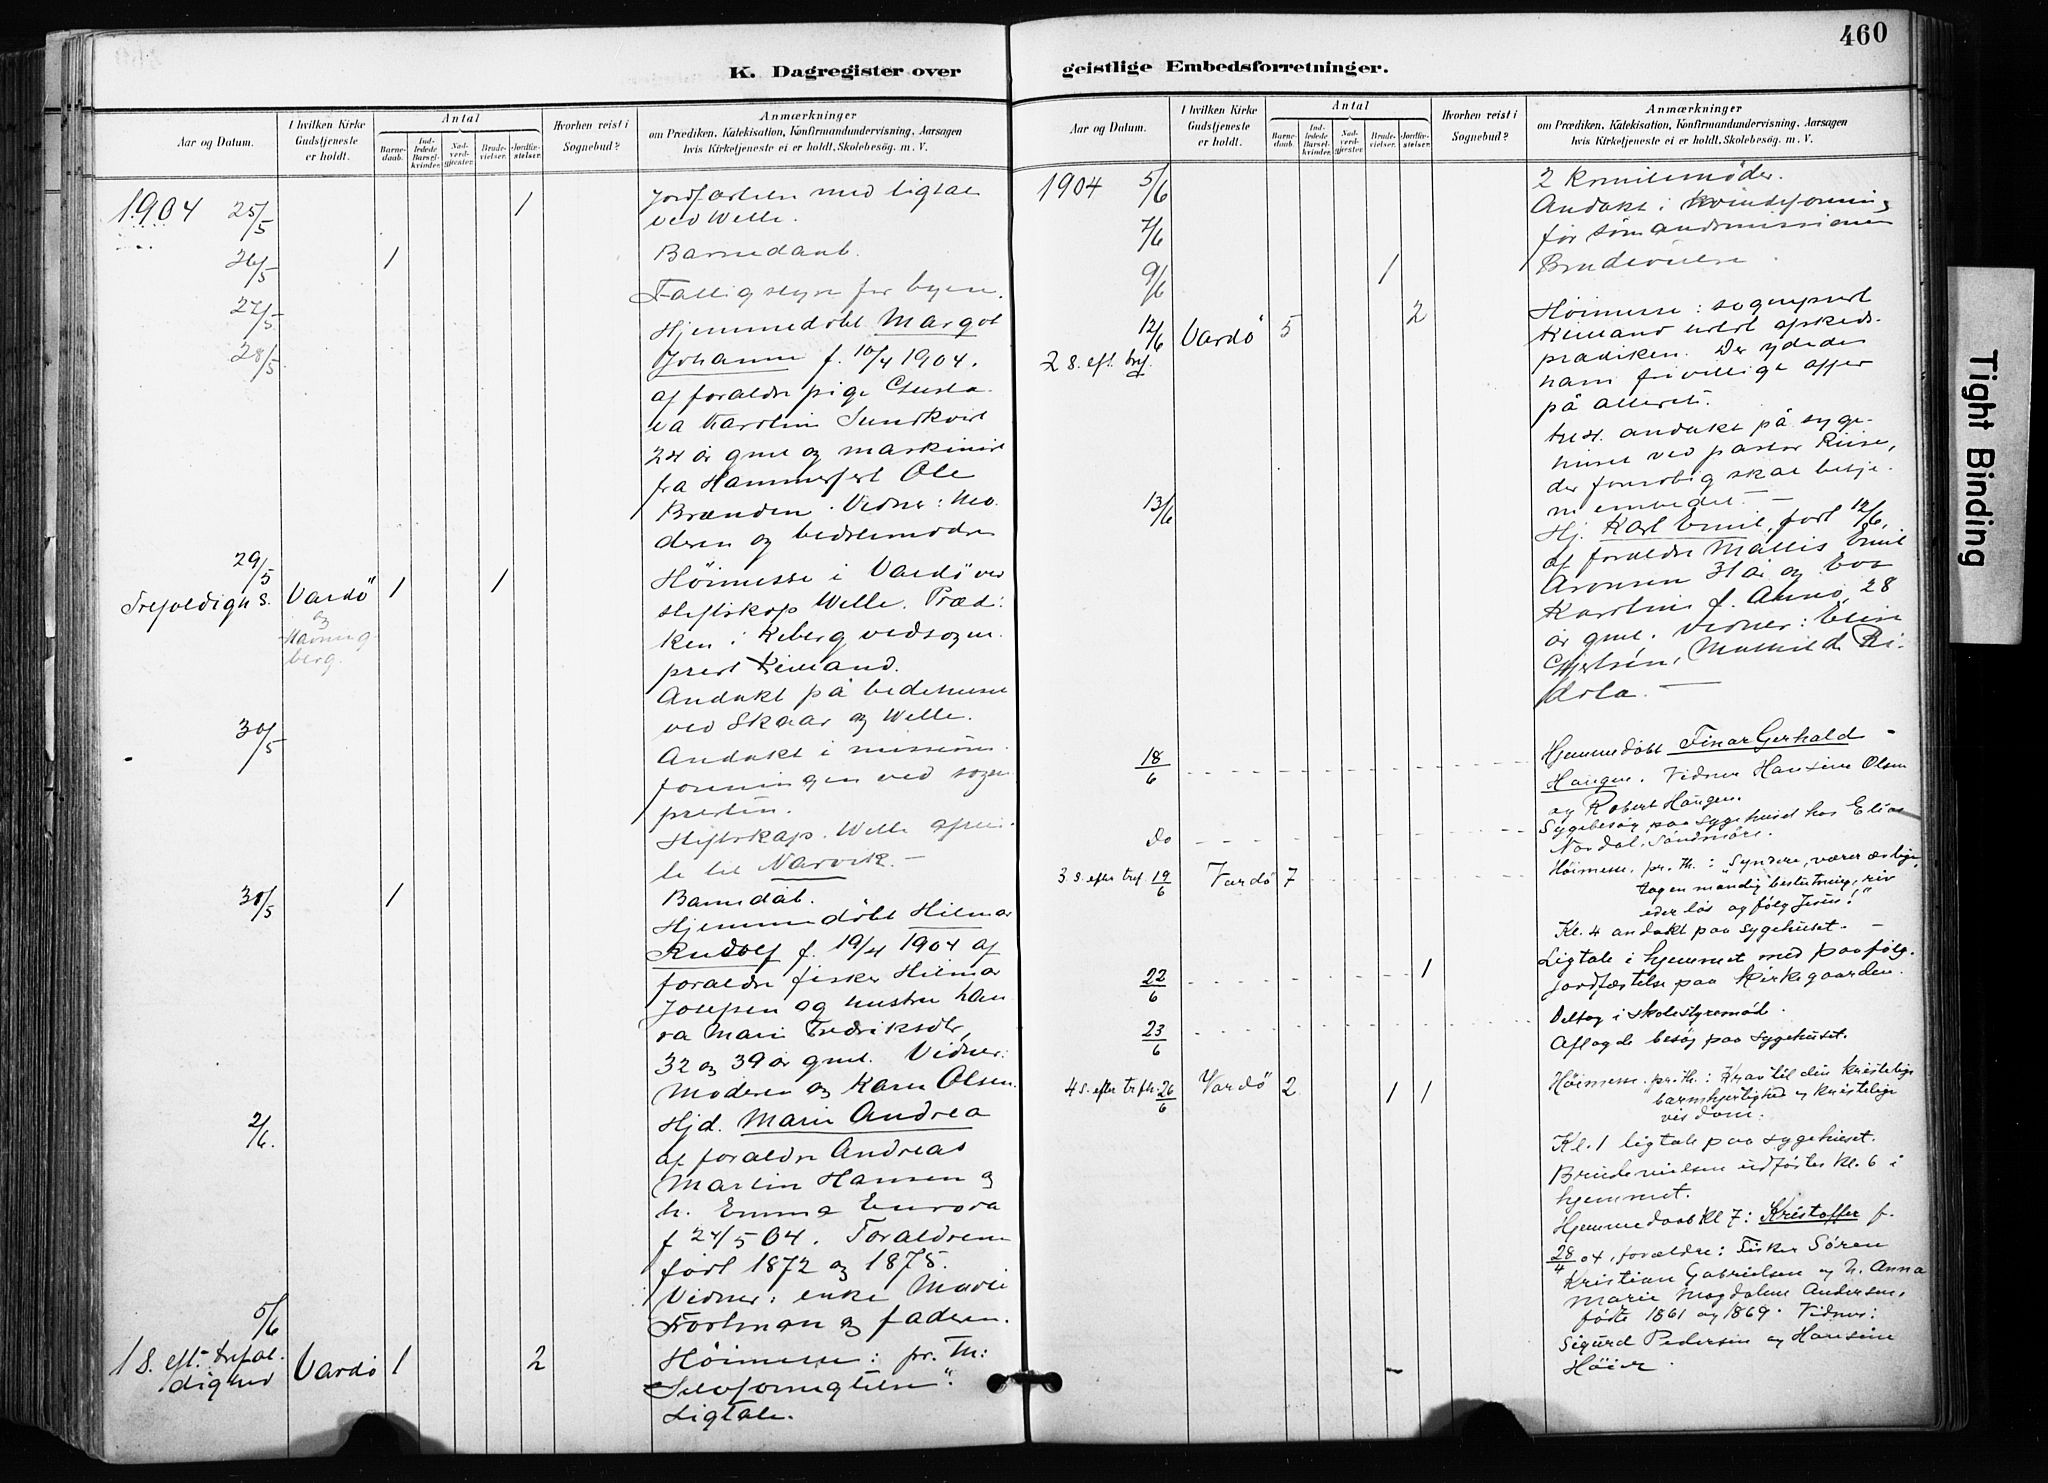 460
K. Dagregister over
Aar og Datum.
I hvilken Kirke Gudstjeneste er holdt.
Antal
Barnedaab.
Indledede Barselkvinder.
Nadverdgjester.
Brudevielser.
Jordfæstelser.
Hvorhen reist i Sognebud?
Anmærkninger
om Prædiken, Katekisation, Konfirmandundervisning, Aarsagen
hvis Kirketjeneste ei er holdt, Skolebesøg. m. V.
1904 25/5 1 Jordfæstelse med ligtale
ved Welle.
26/5 1 Barnedaab.
27/5 Fattigstyre for byen.
28/5 Hjemmedöbt Margot
Johanne f. 10/4 1904.
af foraldre pige Gusta
va Karolin Sundkvist
24 år gml og maskinist
fra Hammerfest Ole
Brænden. Vidner: Mo
deren og bedstemoder
29/5 Trefoldigh S. Vardö og Havning berg. 1 1 Höimesse i Vardö ved
stiftskap Welle. Præd:
ken i Kiberg ved sogne
prest Kieland.
Andakt på bedehuset
ved Skaar og Welle.
30/5 Andakt i missions
foreningen ved sogne
presten.
Stiftskap. Welle afrei
te til Narvik. —
31/5 1 Barnedåb.
Hjemmedöbt Hilmar
Rudolf f. 19/4 1904 af
foraldre fisker Hilmar
Josepsen og hustru han
na Marie Fredriksdtr,
32 og 39 år gml. Vidner:
Moderen og Karen Olsen.
2/6. Hjd. Marie Andrea
af foraldre Andreas
Martin Hansen og
h. Emma Eurora
f 24/5 04. Foraldrene
født 1872 og 1875.
Vidner: enke Marie
Foslman og faderen.
5/6 1 S. eft. trefol-
dighed Vardö 1 2 Höimesse: pr. Th:
"Selvfornegtelse".
Ligtale.
geistlige Embedsforretninger.
Aar og Datum.
I hvilken Kirke Gudstjeneste er holdt.
Antal
Barnedaab.
Indledede Barselkvinder.
Nadverdgjester.
Brudevielser.
Jordfæstelser.
Hvorhen reist i Sognebud?
Anmærkninger
om Prædiken, Katekisation, Konfirmandundervisning, Aarsagen
hvis Kirketjeneste ei er holdt, Skolebesøg. m. V.
1904 5/6 2 komitemøder.
7/6 Andakt i kvindeforening
for sømandsmissionen
9/6 1 Brudevielse.
12/6 2 S. eft. tref. Vardö 5 2 Høimesse: sogneprest
Kieland holdt afskeds-
prædiken. Der ydedes
ham frivillige offer
på alteret.
andakt på syge-
huset ved pastor Riise,
der foreløbig skal betje-
ne embedet —
13/6 Hj. Karl Emil, født 12/6,
af foraldre Mattis Emil
Aronsen 31 år og
Karoline f. Anno, 28
år gml. Vidner: Elise
Mathilde
18/6 Hjemmedöbt Einar Gerhald
Haugen. Vidner Hansine Olsen
og Robert Haugen.
Do Sygebesøg paa sygehuset hos Elias
Nordal, Söndmöre.
3 S. efter tref. 19/6 Vardö 7 Höimesse. pr. Th.: "Syndere, værer ærlige,
tag en mandig beslutning, riv
eder løs og følg Jesus!"
Kl. 4 andakt paa sygehuset. —
22/6 1 Ligtale i hjemmet med paafølg.
Jordfæstelse paa kirkegaarden.
Deltog i skolestyremöde.
23/6 Aflagde besøg paa sygehuset.
4 S. efter trefh. 26/6 Vardö 2 1 1 Höimesse. pr. Th.: "Krav til den kristelige
barmhjertighed og kristelige
visdom.
Kl. 1 ligtale paa sygehuset.
Brudevielsen udførtes kl. 6 i
hjemmet.
Hjemmedaab kl 7: Kristoffer f.
28/4 04, forældre: Fisker Sören
Kristian Gabrielsen og h. Anna
Marie Magdalene Andersen,
fødte 1861 og 1869. Vidner:
Sigurd Pedersen og Hansine
Höier.
Tight Binding